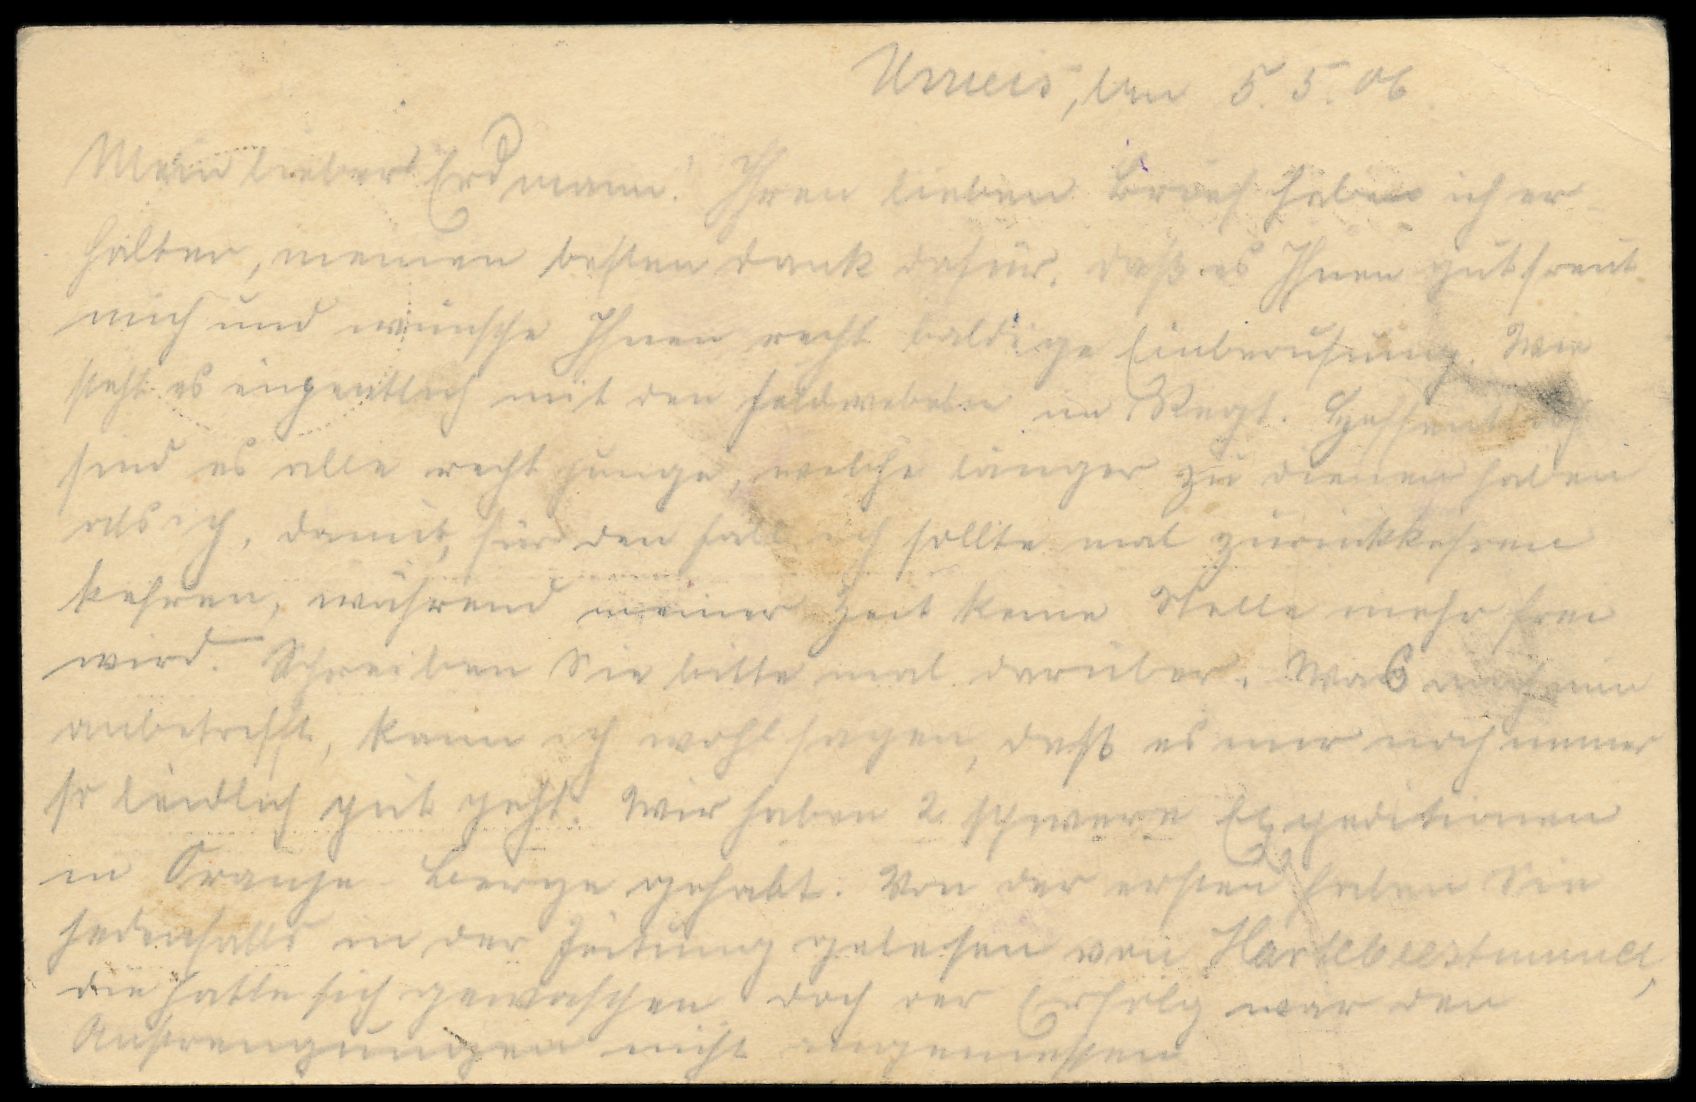 Umeis, den 5.5.06
Mein lieber Erdmann! Ihren lieben Brief habe ich er-
halten, meinen besten Dank dafür. Daß es Ihnen gut freut
mich und wünsche Ihnen recht baldige Einberufung. Wie
steht es eigentlich mit den Feldwebeln im Regt. Hoffentlich
sind es alle recht junge, welche länger zu dienen haben
als ich, damit, für den Fall ich sollte mal zurückkehren
kehren, während meiner Zeit keine Stelle mehr frei
wird. Schreiben Sie bitte mal darüber. Was mich nun
anbetrifft, kann ich wohl sagen, daß es mir noch immer
so leidlich gut geht. Wir haben 2 schwere Expeditionen
in Oranje Berge gehabt. Von der ersten haben Sie
jedenfalls in der Zeitung gelesen von Hartebeestmund,
die hatte sich gewaschen doch der Erfolg war den
Anstrengungen nicht angemessen